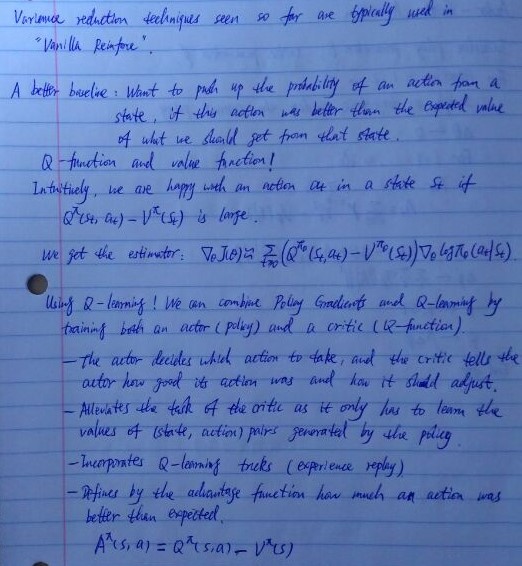 Variance reduction techniques seen so far are typically used in
"Vanilla Reinforce".
A better baseline: Want to push up the probability of an action from a
state, if this action was better than the expected value
of what we should get from that state.
Q-function and value function!
Intuitively, we are happy with an action at in a state St if
Q^π(St, at) - V^π(St) is large.
We get the estimator: ∇θ J(θ) ≈ Σ_{t≥0} (Q^{πθ}(St,at) - V^{πθ}(St)) ∇θ log πθ(at|St).
Using Q-learning! We can combine Policy Gradients and Q-learning by
training both an actor (policy) and a critic (Q-function).
- The actor decides which action to take, and the critic tells the
actor how good its action was and how it should adjust.
- Alleviates the task of the critic as it only has to learn the
values of (state, action) pairs generated by the policy.
- Incorporates Q-learning tricks (experience replay)
- Defines by the advantage function how much an action was
better than expected.
A^π(s, a) = Q^π(s,a) - V^π(s)